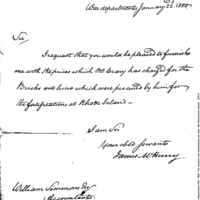 War department January 22 1800
Sir
I request that you would be pleased to furnish
me with the prices which Mr Crary has charged for the
Bricks and lime which were procured by him for
the fortifications at Rhode Island —
I am Sir
Your obed Servant
James McHenry
William Simmons Esq
Accountant